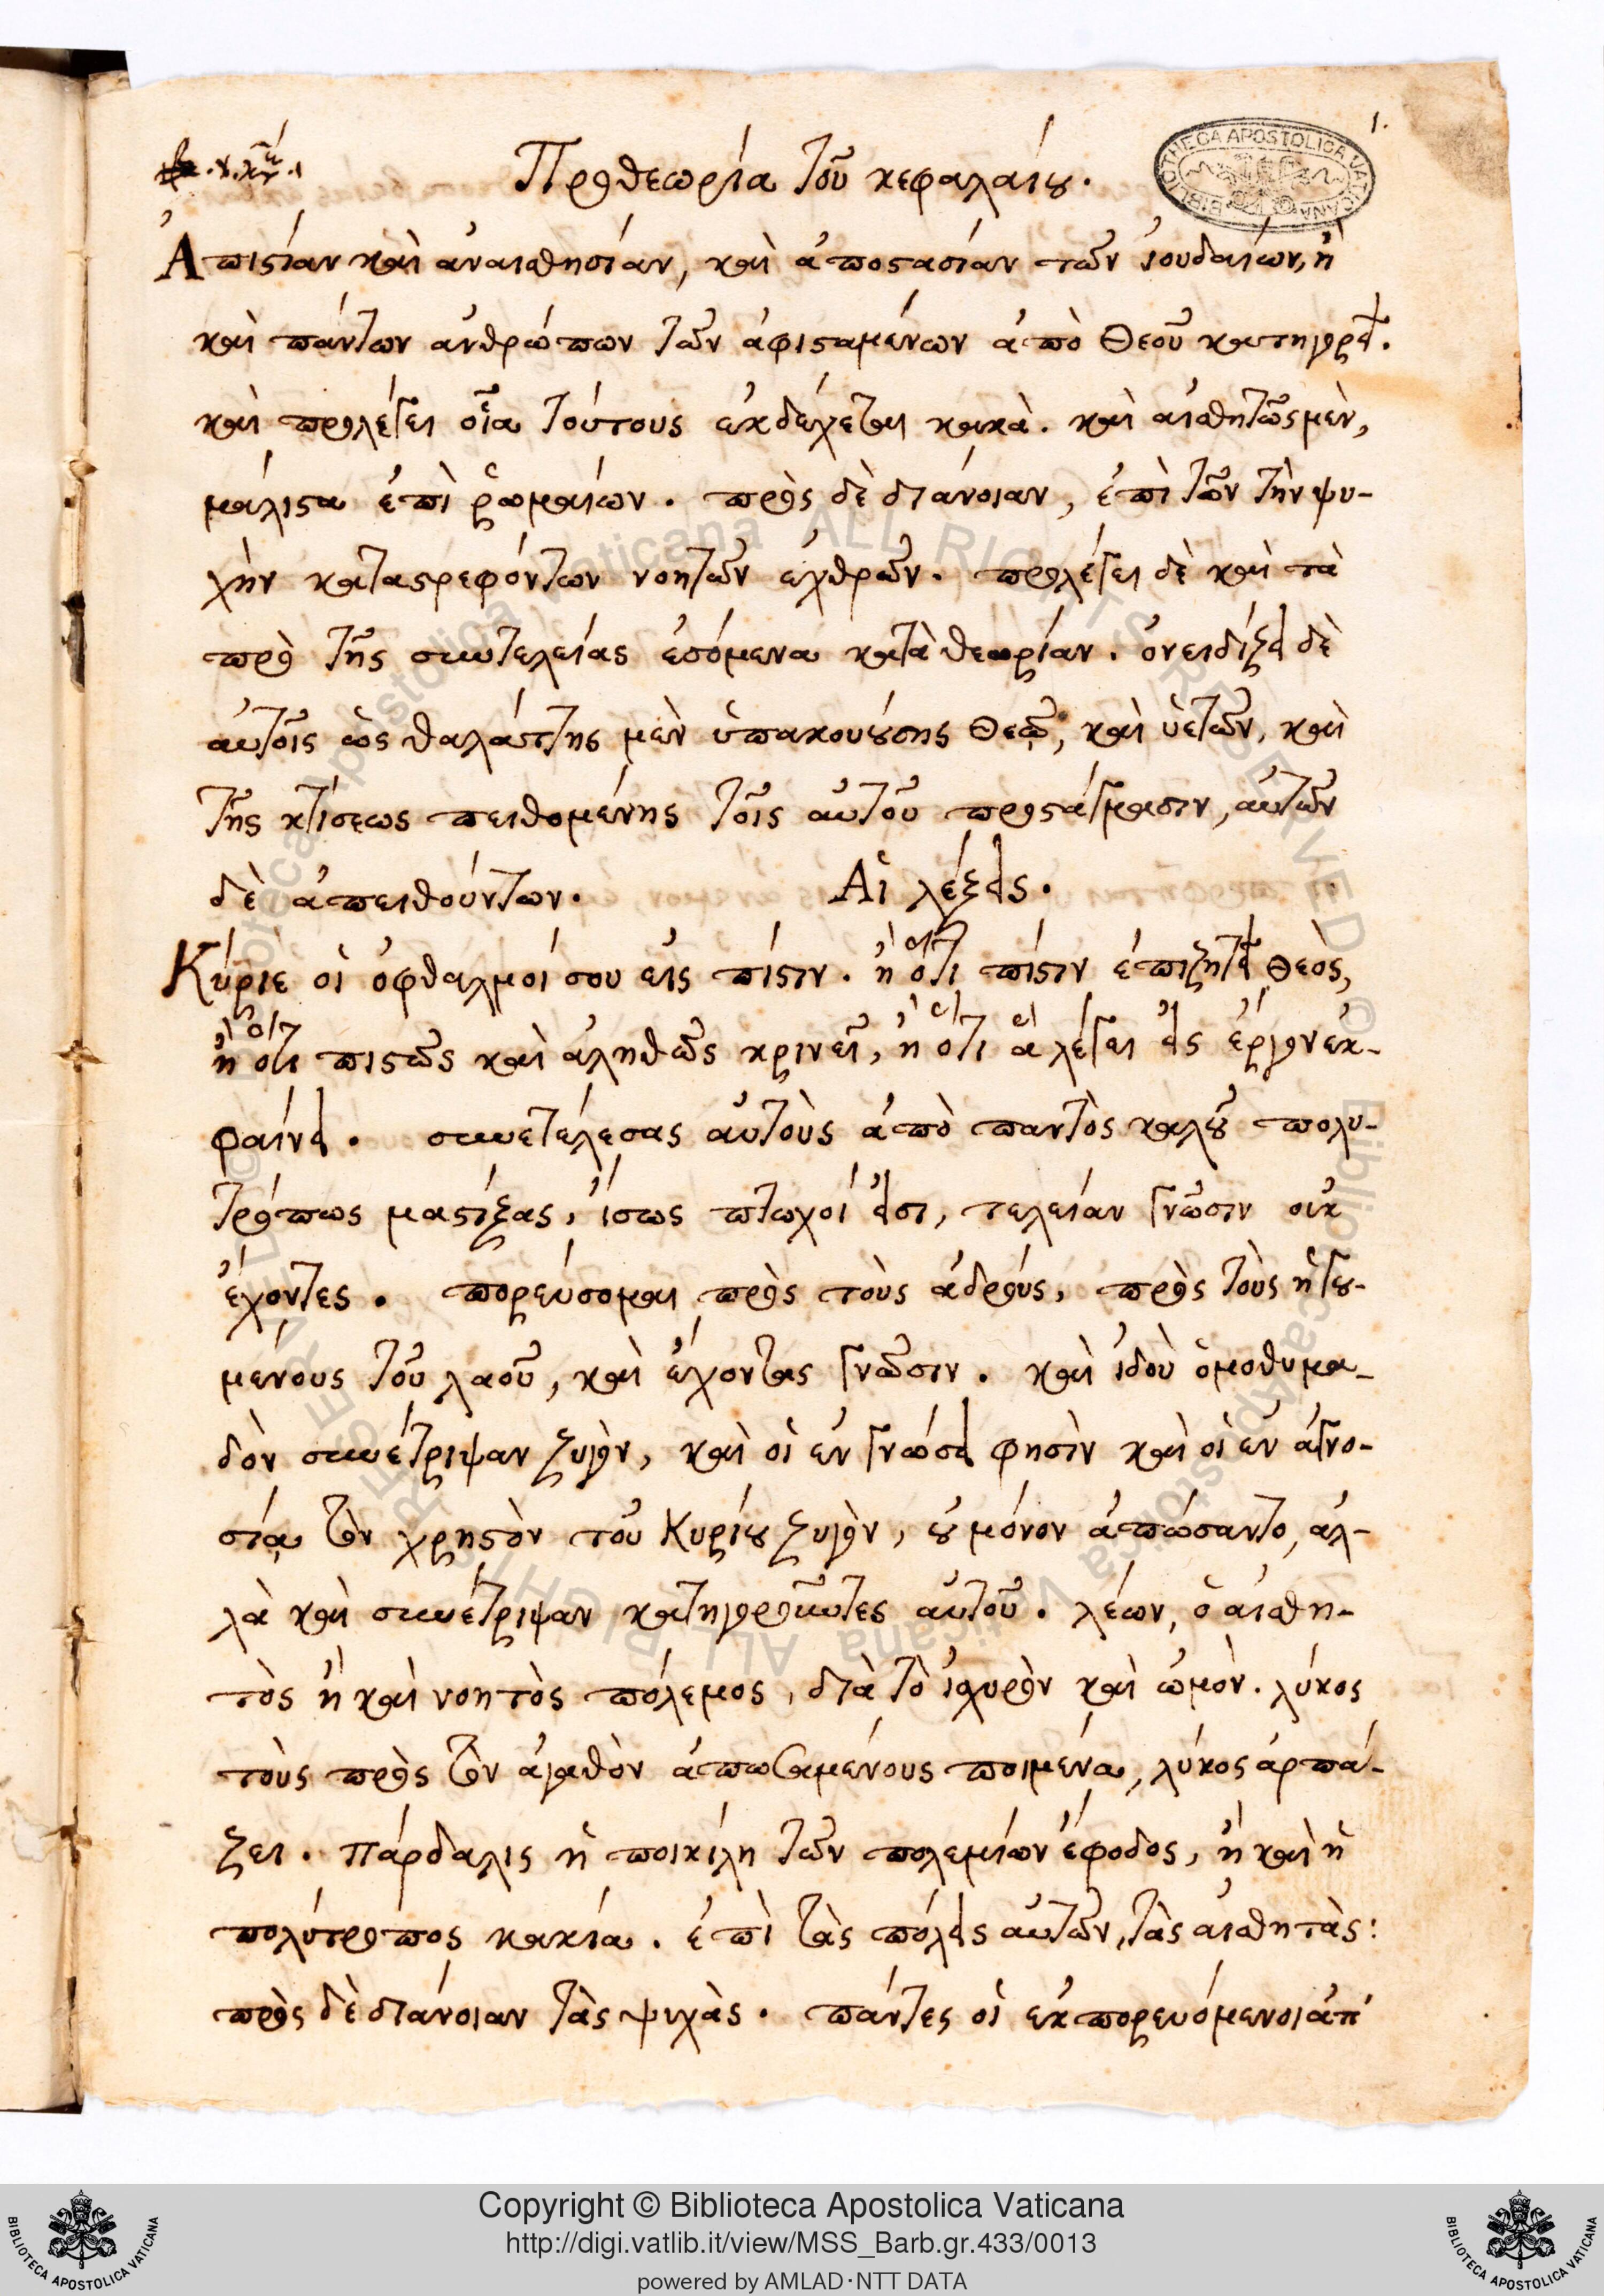 1.
Προθεωρία τοῦ κεφαλαίου.
Ἀπιστίαν καὶ ἀναισθησίαν, καὶ ἀποστασίαν τῶν ἰουδαίων, ἢ
καὶ πάντων ἀνθρώπων τῶν ἀφισταμένων ἀπὸ Θεοῦ κατηγορεῖ.
καὶ προλέγει οἷα τούτους ἐκδέχεται κακὰ. καὶ αἰσθητῶς μὲν,
μάλιστα ἐπὶ ῥωμαίων. πρὸς δὲ διάνοιαν, ἐπὶ τῶν τὴν ψυ-
χὴν καταστρεφόντων νοητῶν ἐχθρῶν. προλέγει δὲ καὶ τὰ
πρὸ τῆς συντελείας ἐσόμενα κατὰ θεωρίαν. ὀνειδίζει δὲ
αὐτοῖς ὡς θαλάττης μὲν ὑπακουούσης Θεῷ, καὶ ὑετῶν, καὶ
τῆς κτίσεως πειθομένης τοῖς αὐτοῦ προστάγμασιν, αὐτῶν
δὲ ἀπειθούντων. Αἱ λέξεις.
Κύριε οἱ ὀφθαλμοί σου εἰς πίστιν. ἢ ὅτι πίστιν ἐπιζητεῖ Θεὸς,
ἢ ὅτι πιστῶς καὶ ἀληθῶς κρινεῖ, ἢ ὅτι ἃ λέγει εἰς ἔργον ἐκ-
φαίνει. συνετέλεσας αὐτοὺς ἀπὸ παντὸς καλοῦ πολυ-
τρόπως μαστίξας, ἴσως πτωχοί εἰσι, τελείαν γνῶσιν οὐκ
ἔχοντες. πορεύσομαι πρὸς τοὺς ἁδρούς, πρὸς τοὺς ἡγου-
μένους τοῦ λαοῦ, καὶ ἔχοντας γνῶσιν. καὶ ἰδοὺ ὁμοθυμα-
δὸν συνέτριψαν ζυγὸν, καὶ οἱ ἐν γνώσει φησὶν καὶ οἱ ἐν ἀγνο-
σίᾳ τὸν χρηστὸν τοῦ Κυρίου ζυγὸν, οὐ μόνον ἀπώσαντο, ἀλ-
λὰ καὶ συνέτριψαν κατηγοροῦντες αὐτοῦ. λέων, ὁ αἰσθη-
τὸς ἢ καὶ νοητὸς πόλεμος, διὰ τὸ ἰσχυρὸν καὶ ὠμὸν. λύκος
τοὺς πρὸς τὸν ἀγαθὸν ἀπωσαμένους ποιμένα, λύκος ἁρπά-
ζει. πάρδαλις ἡ ποικίλη τῶν πολεμίων ἔφοδος, ἢ καὶ ἡ
πολύτροπος κακία. ἐπὶ τὰς πόλεις αὐτῶν, τὰς αἰσθητὰς:
πρὸς δὲ διάνοιαν τὰς ψυχὰς. πάντες οἱ ἐκπορευόμενοι ἀπ'
BIBLIOTHECA APOSTOLICA VATICANA
Copyright © Biblioteca Apostolica Vaticana
http://digi.vatlib.it/view/MSS_Barb.gr.433/0013
powered by AMLAD·NTT DATA